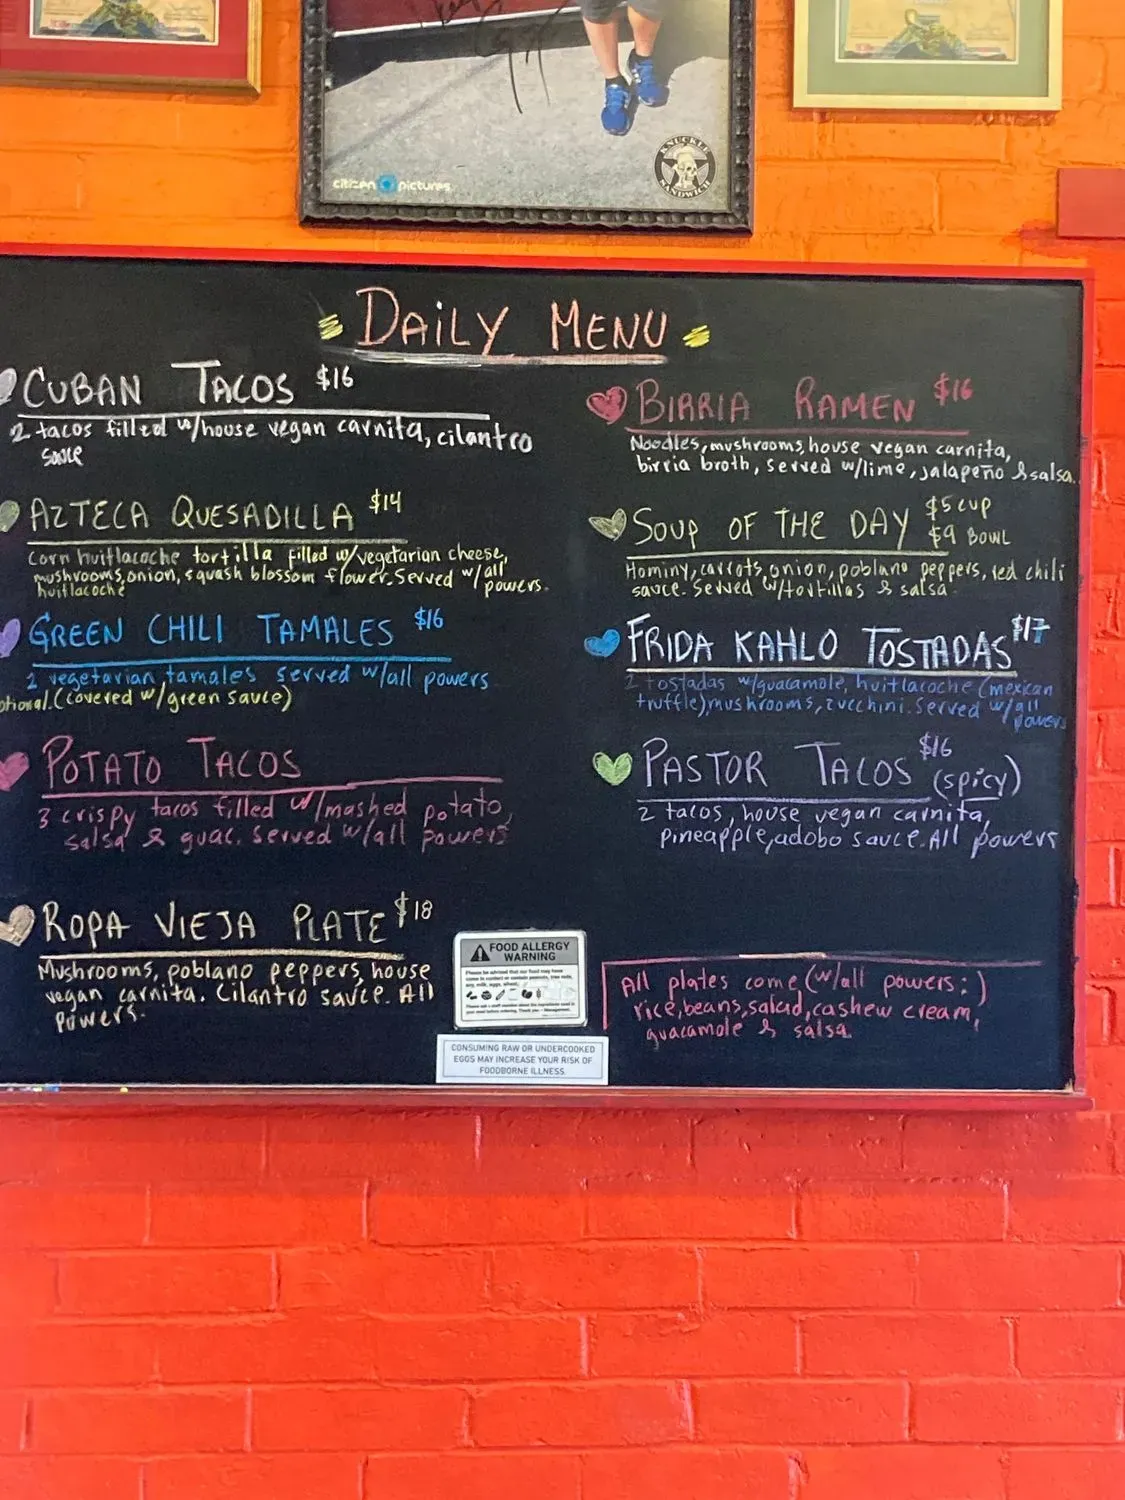 citizen pictures
KNUCKLE
SANDWICH
DAILY MENU
CUBAN TACOS $16
2 tacos filled w/house vegan carnita, cilantro
sauce
AZTECA QUESADILLA $14
Corn huitlacoche tortilla filled w/vegetarian cheese,
mushrooms, onion, squash blossom flower. Served w/all
huitlacoche powers.
GREEN CHILI TAMALES $16
2 vegetarian tamales served w/all powers
otional. (covered w/green sauce)
POTATO TACOS
3 crispy tacos filled w/mashed potato,
salsa & guac. Served w/all powers
ROPA VIEJA PLATE $18
Mushrooms, poblano peppers, house
vegan carnita. Cilantro sauce. All
powers.
BIRRIA RAMEN $16
Noodles, mushrooms, house vegan carnita,
birria broth, served w/lime, jalapeño & salsa.
SOUP OF THE DAY $5 CUP
$9 BOWL
Hominy, carrots, onion, poblano peppers, red chili
sauce. Served w/tortillas & salsa.
FRIDA KAHLO TOSTADAS $17
2 tostadas w/guacamole, huitlacoche (mexican
truffle), mushrooms, zucchini. Served w/all
powers
PASTOR TACOS $16
(spicy)
2 tacos, house vegan carnita,
pineapple, adobo sauce. All powers
All plates come (w/all powers:)
rice, beans, salad, cashew cream,
guacamole & salsa.
FOOD ALLERGY
WARNING
Please be advised that our food may have
come in contact or contain peanuts, tree nuts,
soy, milk, eggs, wheat,
CONSUMING RAW OR UNDERCOOKED
EGGS MAY INCREASE YOUR RISK OF
FOODBORNE ILLNESS